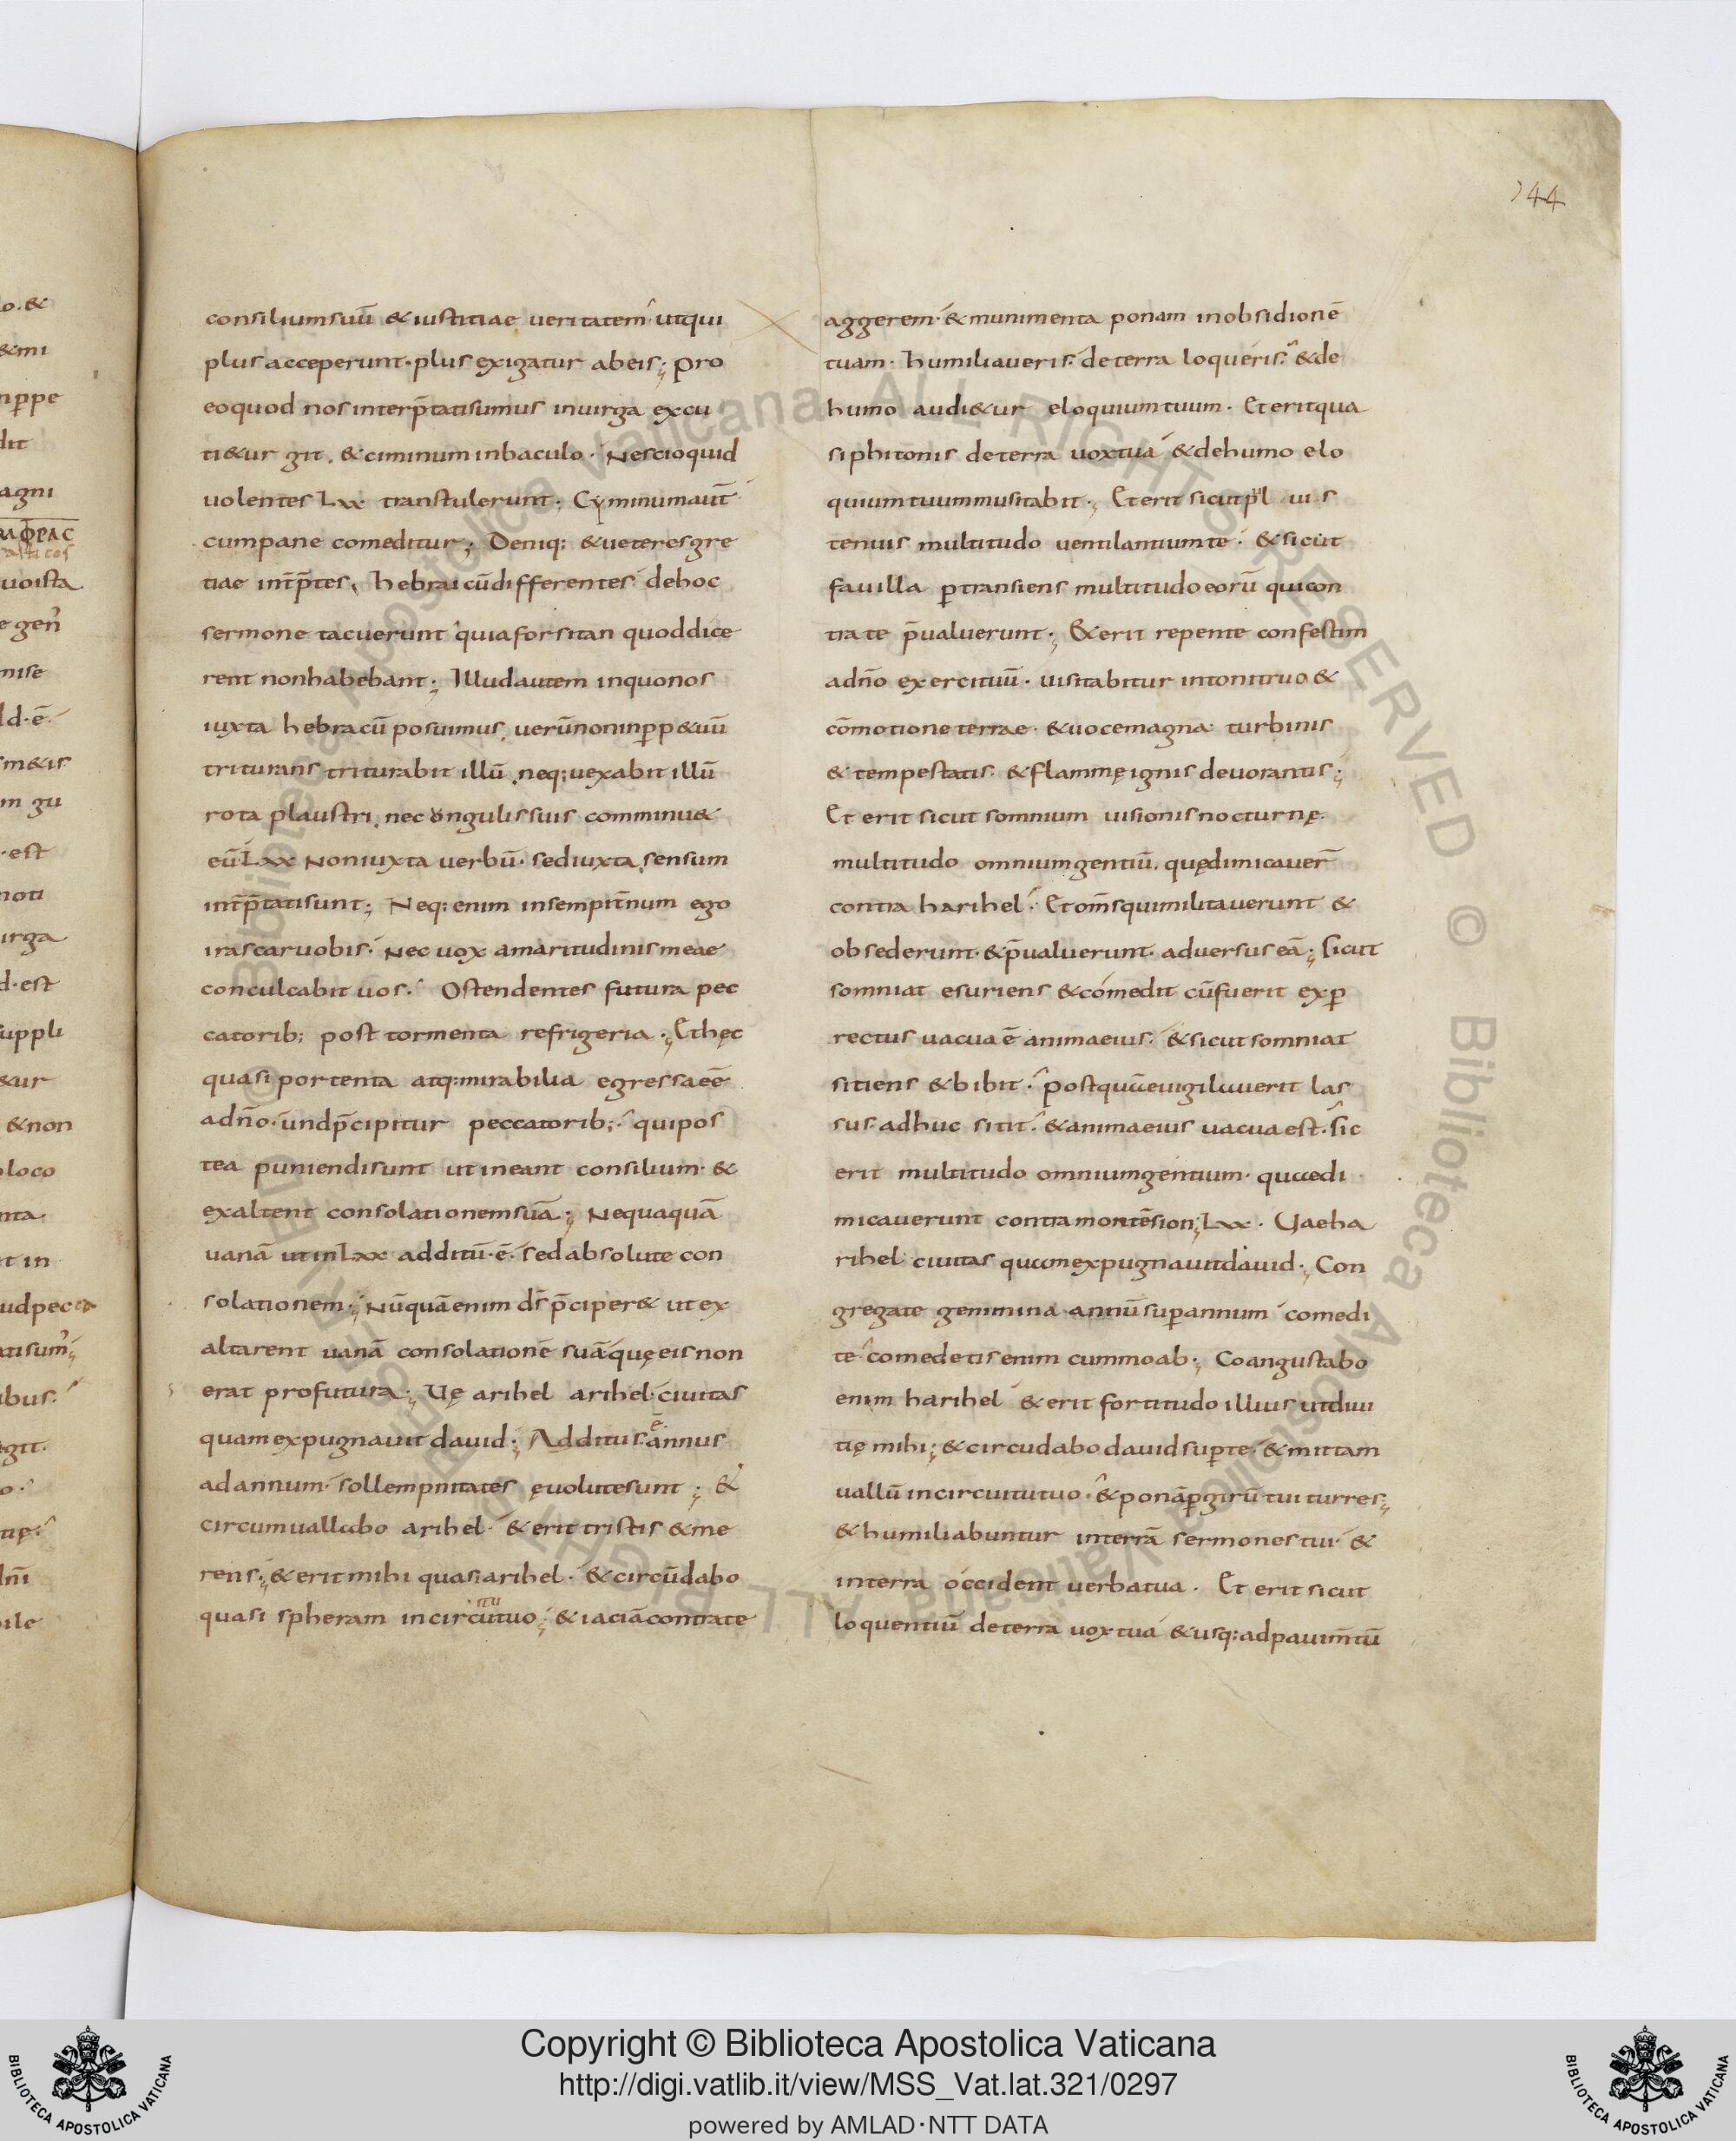 144
consiliumsuū & iustitiae ueritatem utqui
plusacceperunt·plusexigatur abeis; pro
eoquod nosinterp̄tatisumus inuirga excu
ti&ur git. & ciminuminbaculo· Nescioquid
uolentes Lxx· transtulerunt· Cyminumaut̄
cumpane comeditur; Deniq; &ueteresgre
tiae int̄p̄tes, hebraicūdifferentes dehoc
sermone tacuerunt quiaforsitan quoddice
rent nonhabebant; Illudautem inquonos
iuxta hebracū posuimus, uerūnoninꝑp&uū
triturans triturabit illū, neq;uexabit illū
rota plaustri, nec ungulissuis comminu&
eū Lxx Noniuxta uerbū· sediuxta sensum
int̄p̄tatisunt; Neq;enim insempit̄num ego
irascaruobis· Nec uox amaritudinismeae
conculcabit uos· Ostendentes futura pec
catorib; post tormenta refrigeria; Ethęc
quasi portenta atq;mirabilia egressaeē
adn̄o·undp̄cipitur peccatorib; quipos
tea puniendisunt utineant consilium· &
exaltent consolationemsuā; Nequaquā
uanā utinLxx additū·ē· sedabsolute con
solationem; Nūquāenim dſ̄ p̄ciper& utex
altarent uanā consolationē suā quęeisnon
erat profutura; Uę arihel arihel ciuitas
quamexpugnauit dauid; Additusē· annus
adannum· sollempnitates ęuolutesunt; &
circumuallabo arihel· & erit tristis &me
rens; & eritmihi quasiarihel· & circūdabo
quasi spheram incircuituo; & iaciācontrate
aggerem· & munimenta ponam inobsidionē
tuam· humiliaueris· deterra loqueris· &de
humo audi&ur eloquiumtuum· Eteritqua
siphitonis deterra uoxtua &dehumo elo
quiumtuummusitabit; Eterit sicutpul uis
tenuis multitudo uentilantiumte· & sicut
fauilla ꝑtransiens multitudoeorū quicon
tra te p̄ualuerunt; &erit repente confestim
adn̄o exercituū· uisitabitur intonitruo &
cōmotioneterrae· &uocemagna turbinis
& tempestatis· & flammęignis deuorantis;
Et erit sicut somnium uisionisnocturnę·
multitudo omniumgentiū, quędimicauer̄
contra harihel· Etom̄squimilitauerunt &
obsederunt· &p̄ualuerunt· aduersuseā; sicut
somniat esuriens & comedit cūfuerit exꝑ
rectus uacuaē animaeius· & sicutsomniat
sitiens & bibit· postquāeuigilauerit las
sus adhuc sitit· & animaeius uacuaest· sic
erit multitudo omniumgentium· quaedi
micauerunt contramontēsion; Lxx· Uaeha
rihel ciuitas quamexpugnauitdauid; Con
gregate genimina annūsuꝑannum comedi
te comedetisenim cummoab; Coangustabo
enim harihel & erit fortitudo illius utdiui
tię mihi; & circudabo dauidsuꝑte· & mittam
uallū incircuitutuo· & ponāꝑgirū tui turres;
& humiliabuntur interrā sermonestui· &
interra occident uerbatua· Et erit sicut
loquentiū deterra uoxtua &usq;adpauim̄tū
Copyright © Biblioteca Apostolica Vaticana
http://digi.vatlib.it/view/MSS_Vat.lat.321/0297
powered by AMLAD·NTT DATA
BIBLIOTECA APOSTOLICA VATICANA
BIBLIOTECA APOSTOLICA VATICANA